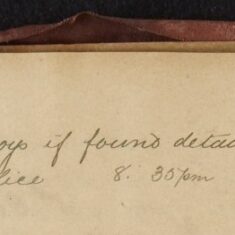 oys if found detai
lice 8. 35pm